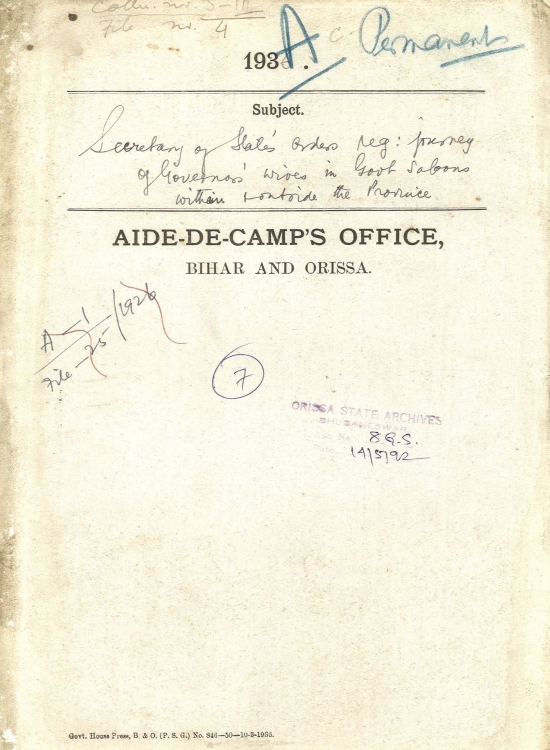 Colln. no. 5-III
File no. 4
A C Permanent
193 .
Subject.
Secretary of State's orders reg: journey
of Governors' wives in Govt Saloons
within & outside the Province
AIDE-DE-CAMP'S OFFICE,
BIHAR AND ORISSA.
A—1/1926
File—25
7
ORISSA STATE ARCHIVES
BHUBANESWAR
8 G.S.
14/5/92
Govt. House Press, B. & O. (P. S. G.) No. 846—50—10-3-1933.